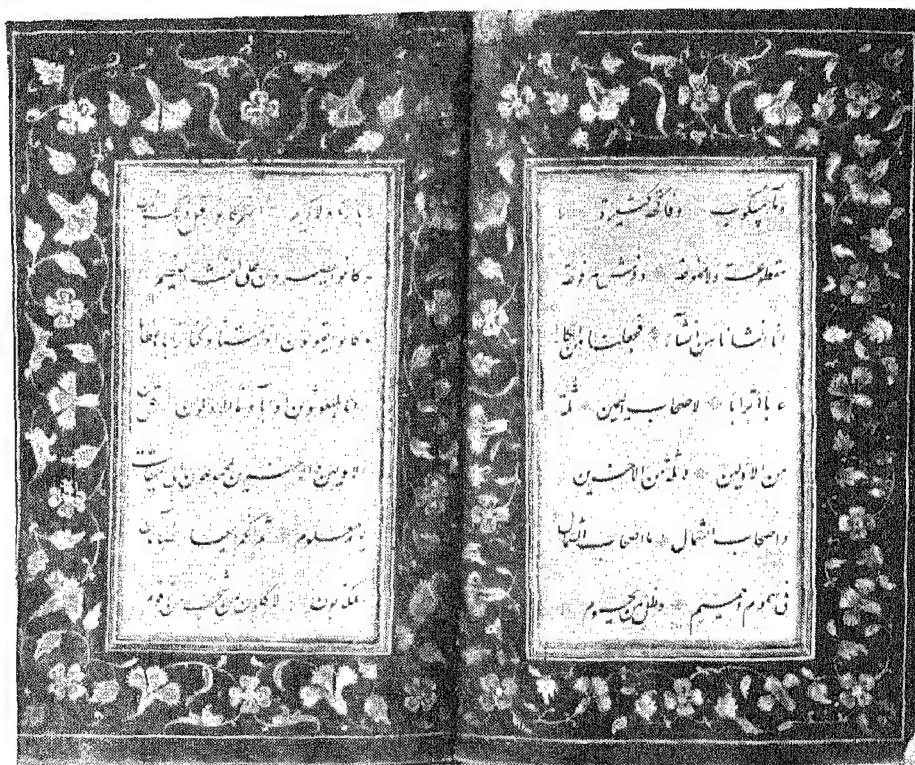 وماء مسكوب وفاكهة كثيرة لا
مقطوعة ولا ممنوعة وفرش مرفوعة
انا انشاناهن انشآء فجعلناهن ابكارا
عربا اترابا لاصحاب اليمين ثلة
من الاولين وثلة من الاخرين
واصحاب الشمال ما اصحاب الشمال
فى سموم وحميم وظل من يحموم
لا بارد ولا كريم انهم كانوا قبل ذلك
وكانوا يصرون على الحنث العظيم
وكانوا يقولون ائذا متنا وكنا ترابا وعظاما
ءانا لمبعوثون او آباونا الاولون قل ان
الاولين والاخرين لمجموعون الى ميقات
يوم معلوم ثم انكم ايها الضآلون
المكذبون لاكلون من شجر من زقوم